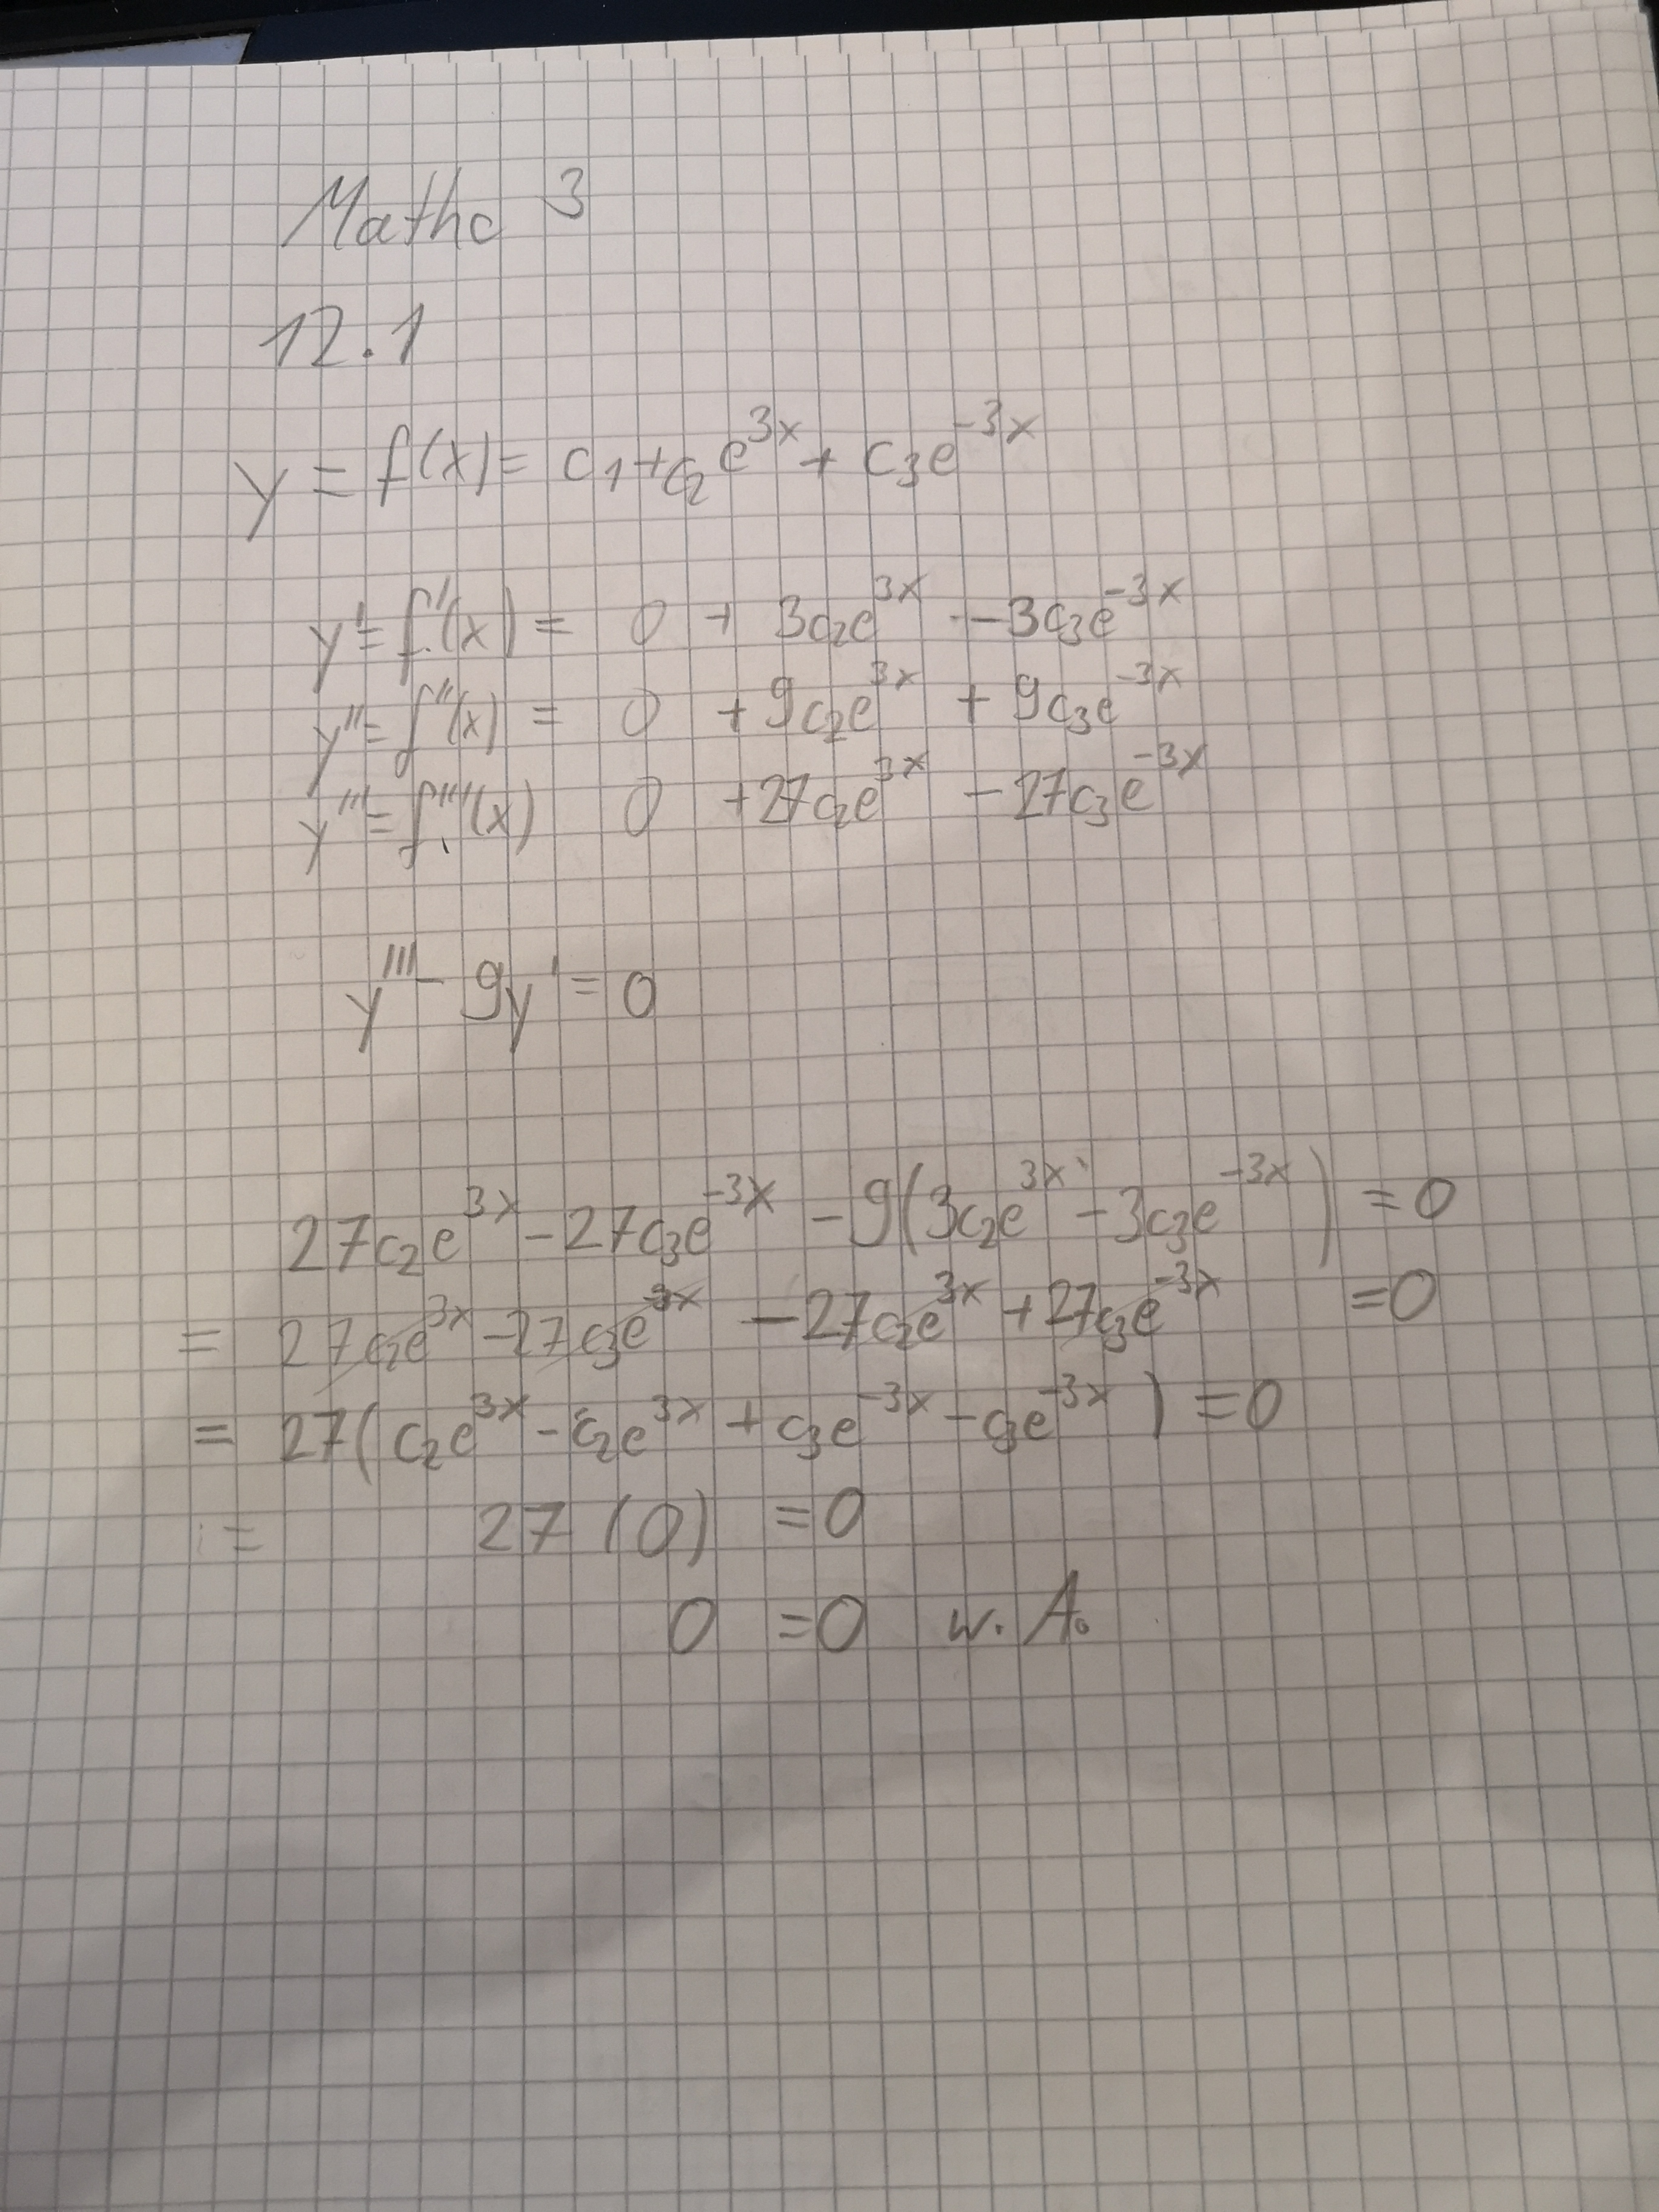 Mathe 3
12.1
y = f(x) = c₁ + c₂e^{3x} + c₃e^{-3x}
y' = f'(x) = 0 + 3c₂e^{3x} - 3c₃e^{-3x}
y'' = f''(x) = 0 + 9c₂e^{3x} + 9c₃e^{-3x}
y''' = f'''(x) 0 + 27c₂e^{3x} - 27c₃e^{-3x}
y''' - 9y' = 0
27c₂e^{3x} - 27c₃e^{-3x} - 9(3c₂e^{3x} - 3c₃e^{-3x}) = 0
= 27c₂e^{3x} - 27c₃e^{-3x} - 27c₂e^{3x} + 27c₃e^{-3x} = 0
= 27(c₂e^{3x} - c₂e^{3x} + c₃e^{-3x} - c₃e^{-3x}) = 0
= 27(0) = 0
0 = 0 w. A.